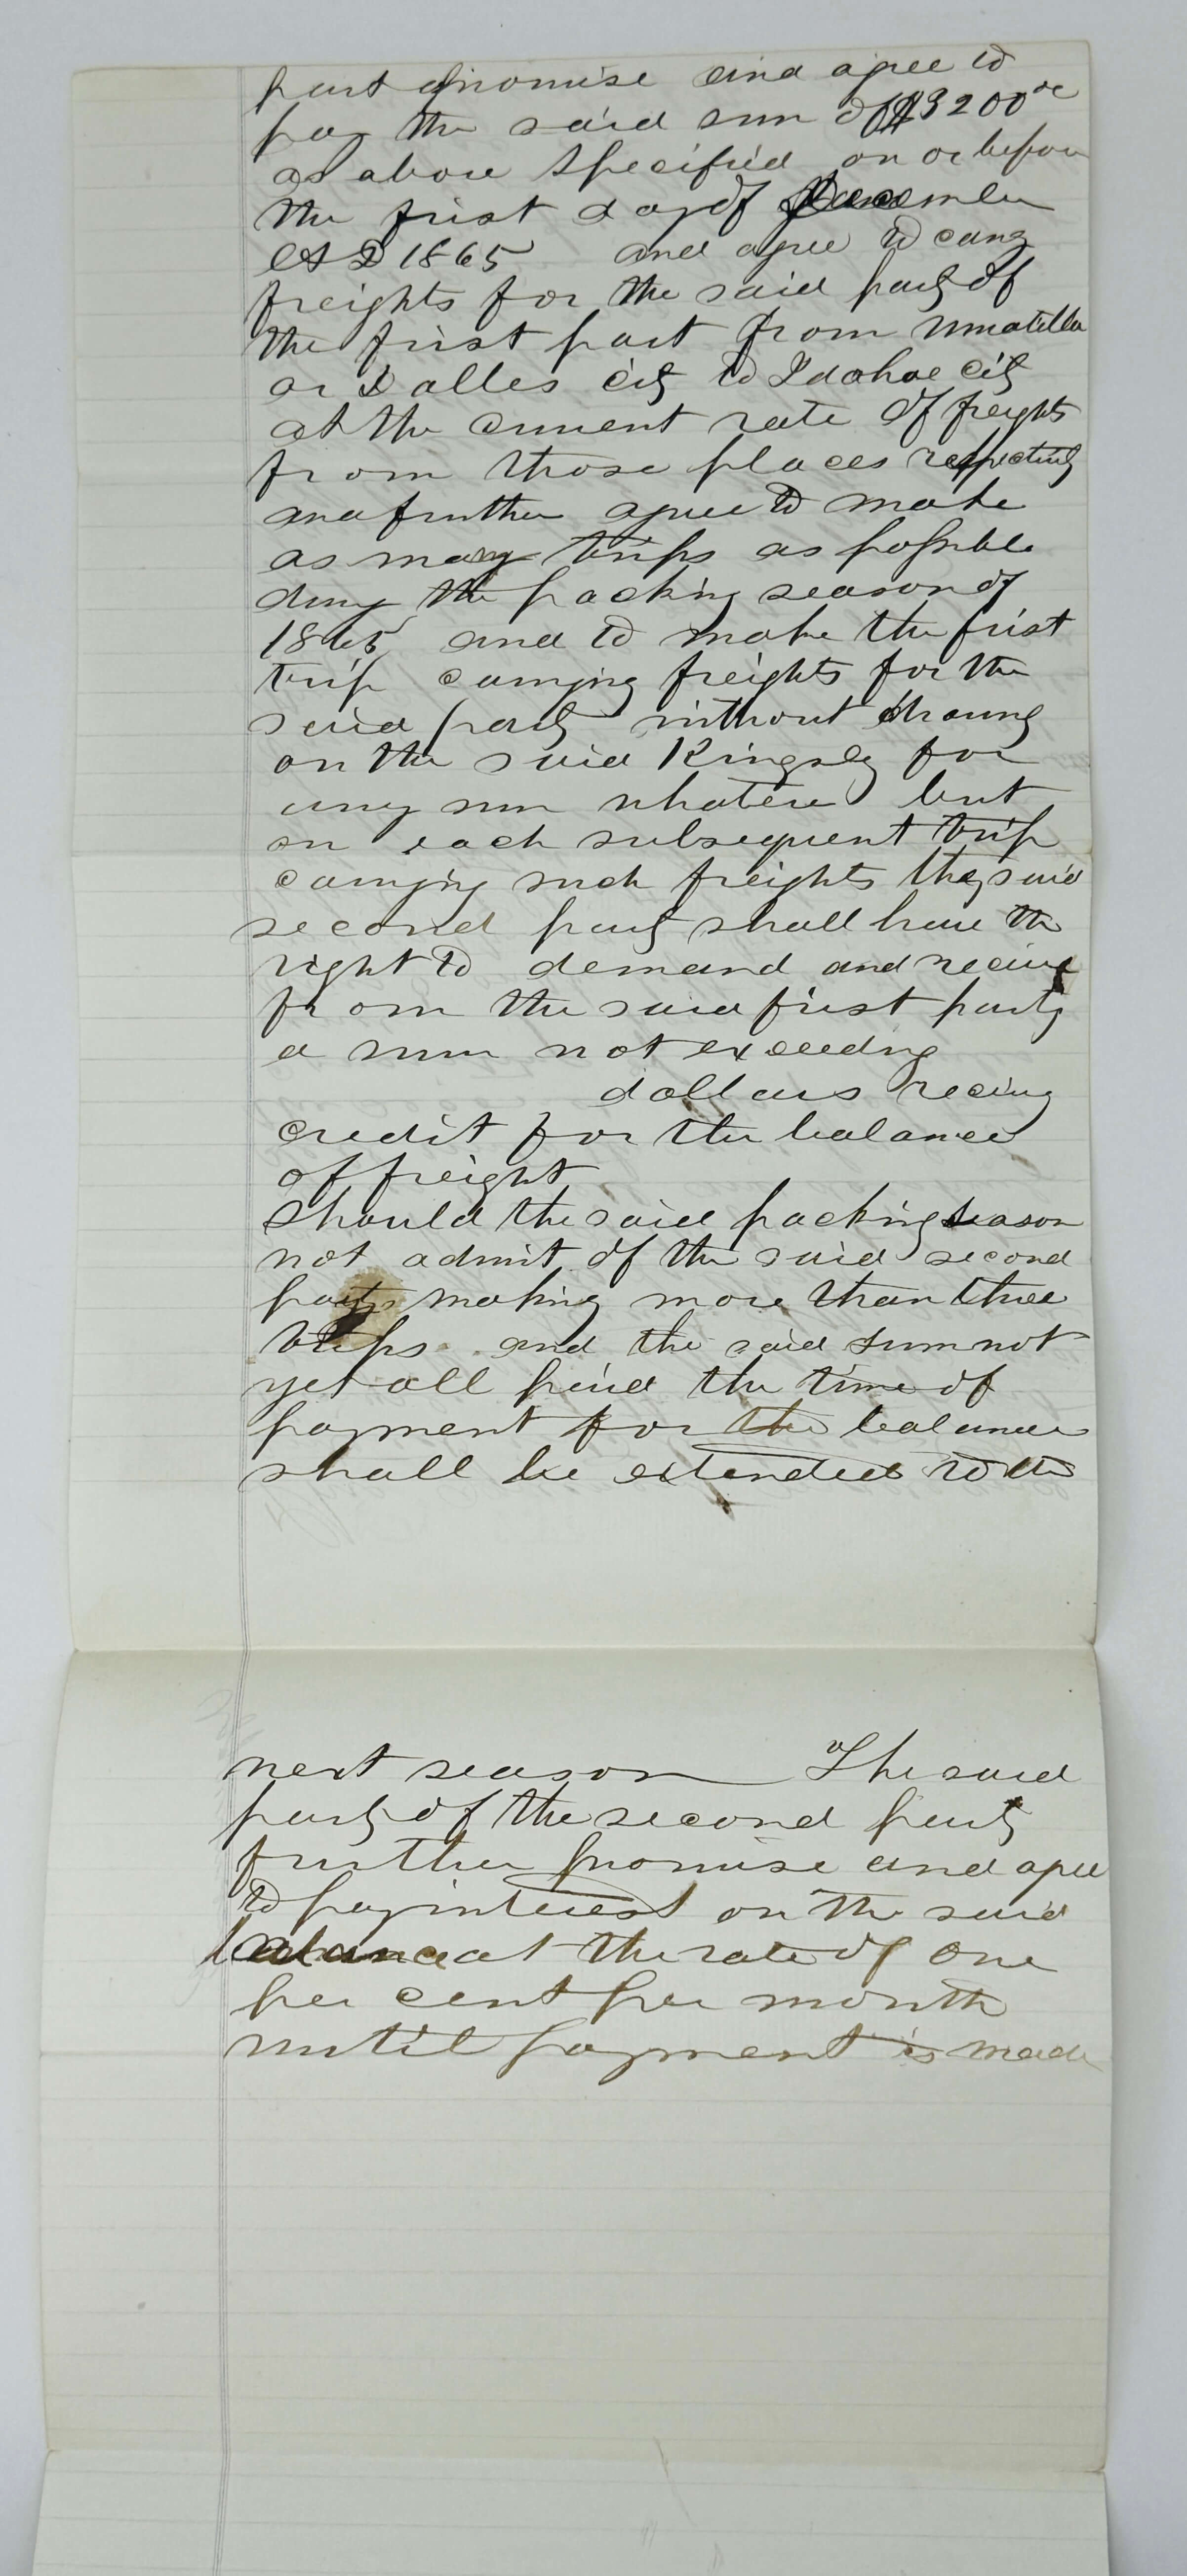 part promise and agree to
pay the said sum of $3200 00
as above specified on or before
the first day of December
A D 1865 and agree to carry
freights for the said party of
the first part from Umatilla
or Dalles city to Idahoe city
at the current rate of freights
from those places respectively
and further agree to make
as many trips as possible
during the packing season of
1865 and to make the first
trip carrying freights for the
said party without drawing
on the said Kingsley for
any sum whatever but
on each subsequent trip
carrying such freights the said
second party shall have the
right to demand and receive
from the said first party
a sum not exceeding
dollars receiving
credit for the balance
of freight
Should the said packing season
not admit of the said second
party making more than three
trips and the said sum not
yet all paid the time of
payment for the balance
shall be extended to the
next season The said
party of the second party
further promise and agree
to pay interest on the said
balance at the rate of one
per cent per month
until payment is made